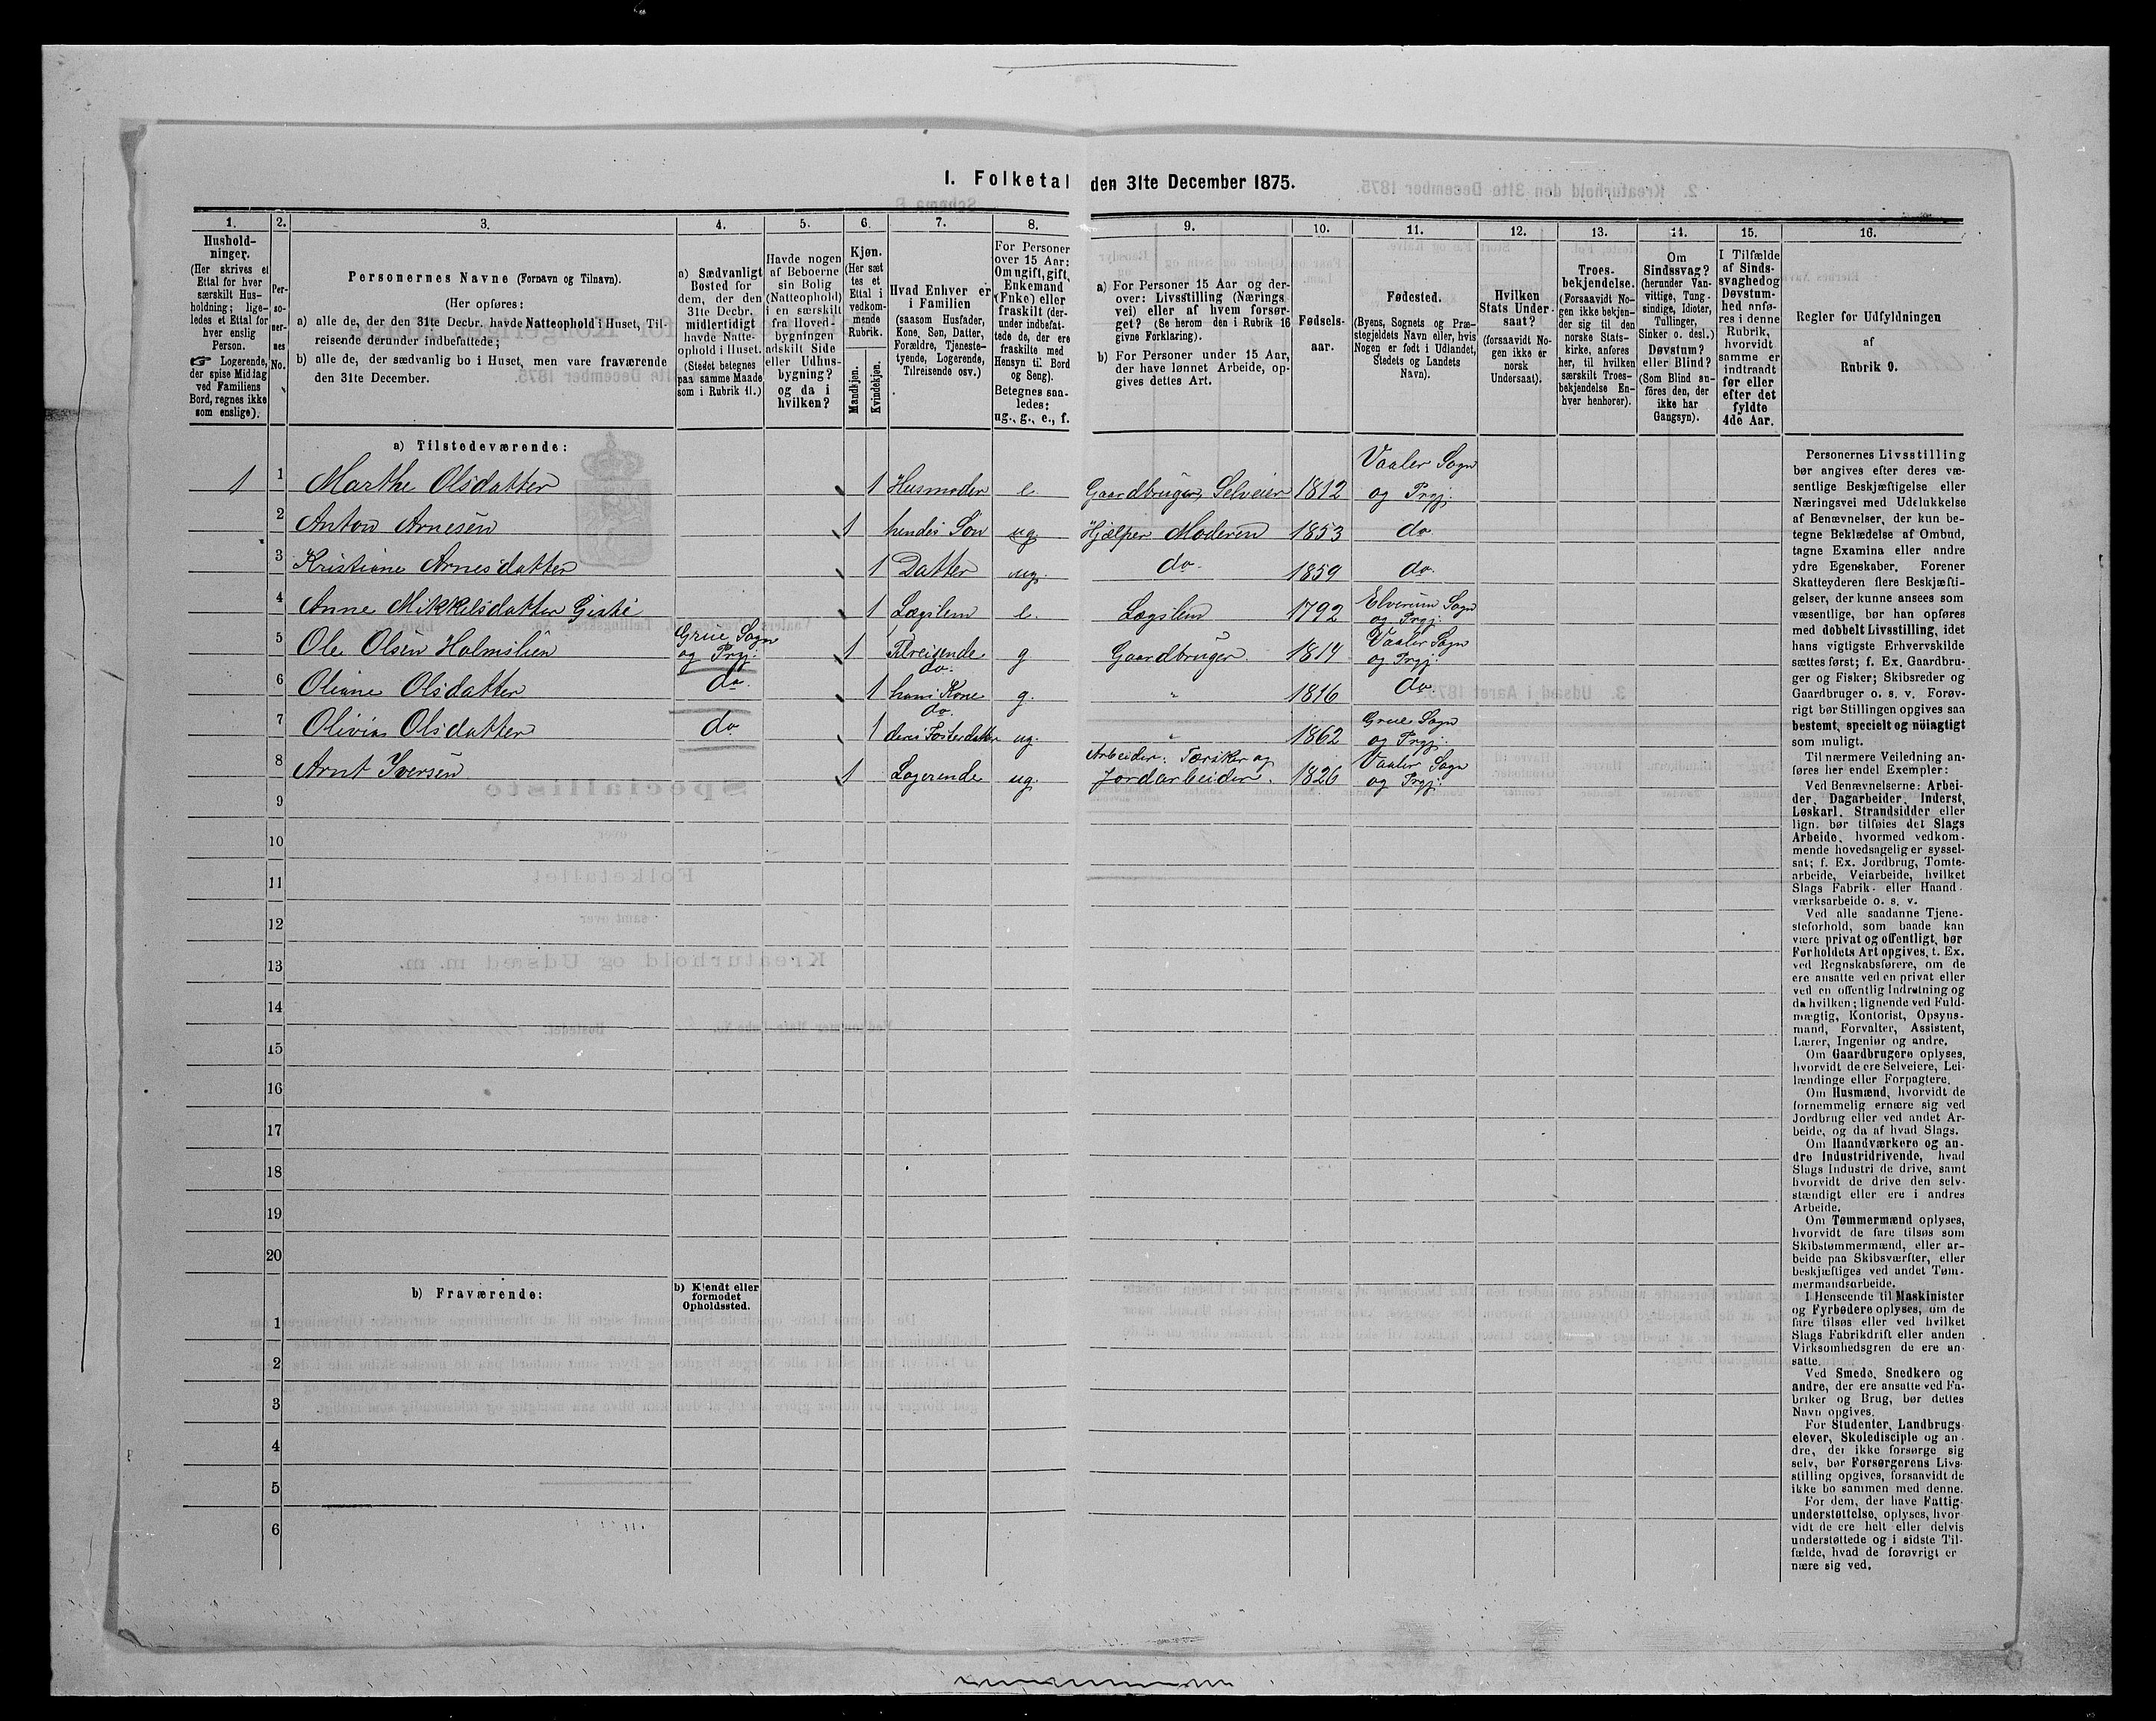 I. Folketal den 31te December 1875.
1.
Hushold-
ninger.
(Her skrives et
Ettal for hver
særskilt Hus-
holdning; lige-
ledes et Ettal for
hver enslig
Person.
☞ Logerende,
der spise Middag
ved Familiens
Bord, regnes ikke
som enslige).
2.
Per-
so-
ner-
nes
No.
3.
Personernes Navne (Fornavn og Tilnavn).
(Her opføres:
a) alle de, der den 31te Decbr. havde Natteophold i Huset, Til-
reisende derunder indbefattede;
b) alle de, der sædvanlig bo i Huset, men vare fraværende
den 31te December.
4.
a) Sædvanligt
Bosted for
dem, der den
31te Decbr.
midlertidigt
havde Natte-
ophold i Huset.
(Stedet betegnes
paa samme Maade
som i Rubrik 11.)
5.
Havde nogen
af Beboerne
sin Bolig
(Natteophold)
i en særskilt
fra Hoved-
bygningen
adskilt Side
eller Udhus-
bygning?
og da i
hvilken?
6.
Kjøn.
(Her sæt
tes et
Ettal i
vedkom-
mende
Rubrik.
Mandkjøn.
Kvindekjøn.
7.
Hvad Enhver er
i Familien
(saasom Husfader,
Kone, Søn, Datter,
Forældre, Tjeneste-
tyende, Logerende,
Tilreisende osv.)
8.
For Personer
over 15 Aar:
Om ugift, gift,
Enkemand
(Enke) eller
fraskilt (der-
under indbefat-
tede de, der ere
fraskilte med
Hensyn til Bord
og Seng).
Betegnes saa-
ledes:
ug., g., e., f.
9.
a) For Personer 15 Aar og der-
over: Livsstilling (Nærings
vei) eller af hvem forsør-
get? (Se herom den i Rubrik 16
givne Forklaring).
b) For Personer under 15 Aar,
der have lønnet Arbeide, op-
gives dettes Art.
10.
Fødsels-
aar.
11.
Fødested.
(Byens, Sognets og Præ-
stegjeldets Navn eller, hvis
Nogen er født i Udlandet,
Stedets og Landets
Navn).
12.
Hvilken
Stats Under-
saat?
(forsaavidt No-
gen ikke er
norsk
Undersaat).
13.
Troes-
bekjendelse.
(Forsaavidt No-
gen ikke bekjen-
der sig til den
norske Stats-
kirke, anføres
her, til hvilken
særskilt Troes-
bekjendelse En-
hver henhører).
14.
Om
Sindssvag?
(herunder Van-
vittige, Tung-
sindige, Idioter,
Tullinger,
Sinker o. desl.)
Døvstum?
eller Blind?
(Som Blind an-
føres den, der
ikke har
Gangsyn).
15.
I Tilfælde
af Sinds-
svaghed og
Døvstum-
hed anfø-
res i denne
Rubrik,
hvorvidt
samme er
indtraadt
før eller
efter det
fyldte
4de Aar.
16.
Regler for Udfyldningen
af
Rubrik 9.
a) Tilstedeværende:
1 1 Marthe Olsdatter 1 Husmoder e. Gaardbruger, Selveier 1812 Vaaler Sogn
og Prgj.
2 Anton Arnesen 1 hendes Søn ug Hjælper Moderen 1853 do.
3 Kristiane Arnesdatter 1 Datter ug. do. 1859 do.
4 Anne Mikkelsdatter 1 Lægslem e. Lægslem 1792 Elverum Sogn
og Prgj.
5 Ole Olsen Holmslien Grue Sogn
og Prgj: 1 Tilreisende g Gaardbruger. 1814 Vaaler Sogn
og Prgj.
6 Oliane Olsdatter do. 1 do.
hans Kone g. " 1816 do.
7 Olivia Olsdatter do 1 do.
deres Fosterdatter ug. " 1862 Grue Sogn
og Prgj:
8 Arnt Iversen 1 Logerende ug. Arbeider: Tærsker og
Jordarbeider. 1826 Vaaler Sogn
og Prgj:
9
10
11
12
13
14
15
16
17
18
19
20
b) Fraværende:
b) Kjendt eller
formodet
Opholdssted.
1
2
3
4
5
6
Personernes Livsstilling
bør angives efter deres væ-
sentlige Beskjæftigelse eller
Næringsvei med Udelukkelse
af Benævnelser, der kun be-
tegne Beklædelse af Ombud,
tagne Examina eller andre
ydre Egenskaber. Forener
Skatteyderen flere Beskjæfti-
gelser, der kunne ansees som
væsentlige, bør han opføres
med dobbelt Livsstilling, idet
hans vigtigste Erhvervskilde
sættes først; f. Ex. Gaardbru-
ger og Fisker; Skibsreder og
Gaardbruger o. s. v. Forøv-
rigt bør Stillingen opgives saa
bestemt, specielt og nøiagtigt
som muligt.
Til nærmere Veiledning an-
føres her endel Exempler:
Ved Benævnelserne: Arbei-
der, Dagarbeider, Inderst,
Løskarl, Strandsidder eller
lign. bør tilføies det Slags
Arbeide, hvormed vedkom-
mende hovedsagelig er syssel-
sat; f. Ex. Jordbrug, Tomte-
arbeide, Veiarbeide, hvilket
Slags Fabrik- eller Haand-
værksarbeide o. s. v.
Ved alle saadanne Tjene-
steforhold, som baade kan
være privat og offentligt, bør
Forholdets Art opgives, t. Ex.
ved Regnskabsførere, om de
ere ansatte ved en privat eller
ved en offentlig Indretning og
da hvilken; lignende ved Fuld-
mægtig, Kontorist, Opsyns-
mand, Forvalter, Assistent,
Lærer, Ingeniør og andre.
Om Gaardbrugere oplyses,
hvorvidt de ere Selveiere, Lei-
lændinge eller Forpagtere.
Om Husmænd, hvorvidt de
fornemmelig ernære sig ved
Jordbrug eller ved andet Ar-
beide, og da af hvad Slags.
Om Haandværkere og an-
dre Industridrivende, hvad
Slags Industri de drive, samt
hvorvidt de drive den selv-
stændigt eller ere i andres
Arbeide.
Om Tømmermænd oplyses,
hvorvidt de fare tilsøs som
Skibstømmermænd, eller ar-
beide paa Skibsværfter, eller
beskjæftiges ved andet Tøm-
mermandsarbeide.
I Henseende til Maskinister
og Fyrbødere oplyses, om de
fare tilsøs eller ved hvilket
Slags Fabrikdrift eller anden
Virksomhedsgren de ere an-
satte.
Ved Smede, Snedkere og
andre, der ere ansatte ved Fa-
briker og Brug, bør dettes
Navn opgives.
For Studenter, Landbrugs-
elever, Skoledisciple og an-
dre, der ikke forsørge sig
selv, bør Forsørgerens Livs-
stilling opgives, forsaavidt de
ikke bo sammen med denne.
For dem, der have Fattig-
understøttelse, oplyses, hvor-
vidt de ere helt eller delvis
understøttede og i sidste Til-
fælde, hvad de forøvrigt er
nære sig ved.